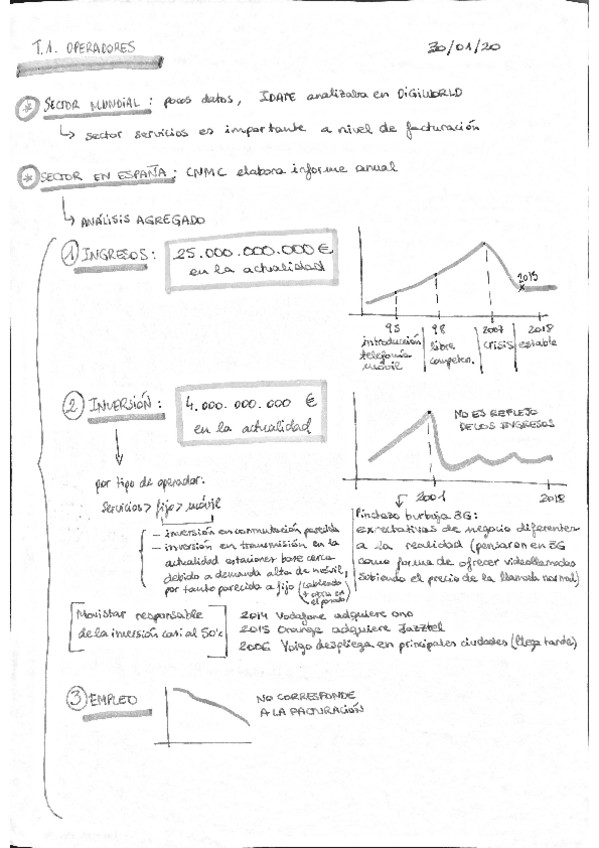 T.1. OPERADORES
30/01/20
* SECTOR MUNDIAL: pocos datos, IDATE analizaba en DIGIWORLD
↳ sector servicios es importante a nivel de facturación
* SECTOR EN ESPAÑA: CNMC elabora informe anual
↳ ANÁLISIS AGREGADO
1 INGRESOS:
25.000.000.000 €
en la actualidad
2015
95 98 2007 2018
introducción telefonía móvil
libre competen.
crisis
estable
2 INVERSIÓN:
4.000.000.000 €
en la actualidad
NO ES REFLEJO
DE LOS INGRESOS
2001 2018
por tipo de operador:
Servicios > fijo > móvil
- inversión en conmutación parecida
- inversión en transmisión en la
actualidad estaciones base cerca
debido a demanda alta de móvil,
por tanto parecido a fijo (cableado
+ obra en
el pasado)
Pinchazo burbuja 3G:
expectativas de negocio diferentes
a la realidad (pensaron en 3G
como forma de ofrecer videollamadas
subiendo el precio de la llamada normal)
Movistar responsable
de la inversión casi al 50%
2014 Vodafone adquiere ono
2015 Orange adquiere Jazztel
2006 Yoigo despliega en principales ciudades (llega tarde)
3 EMPLEO
NO CORRESPONDE
A LA FACTURACIÓN